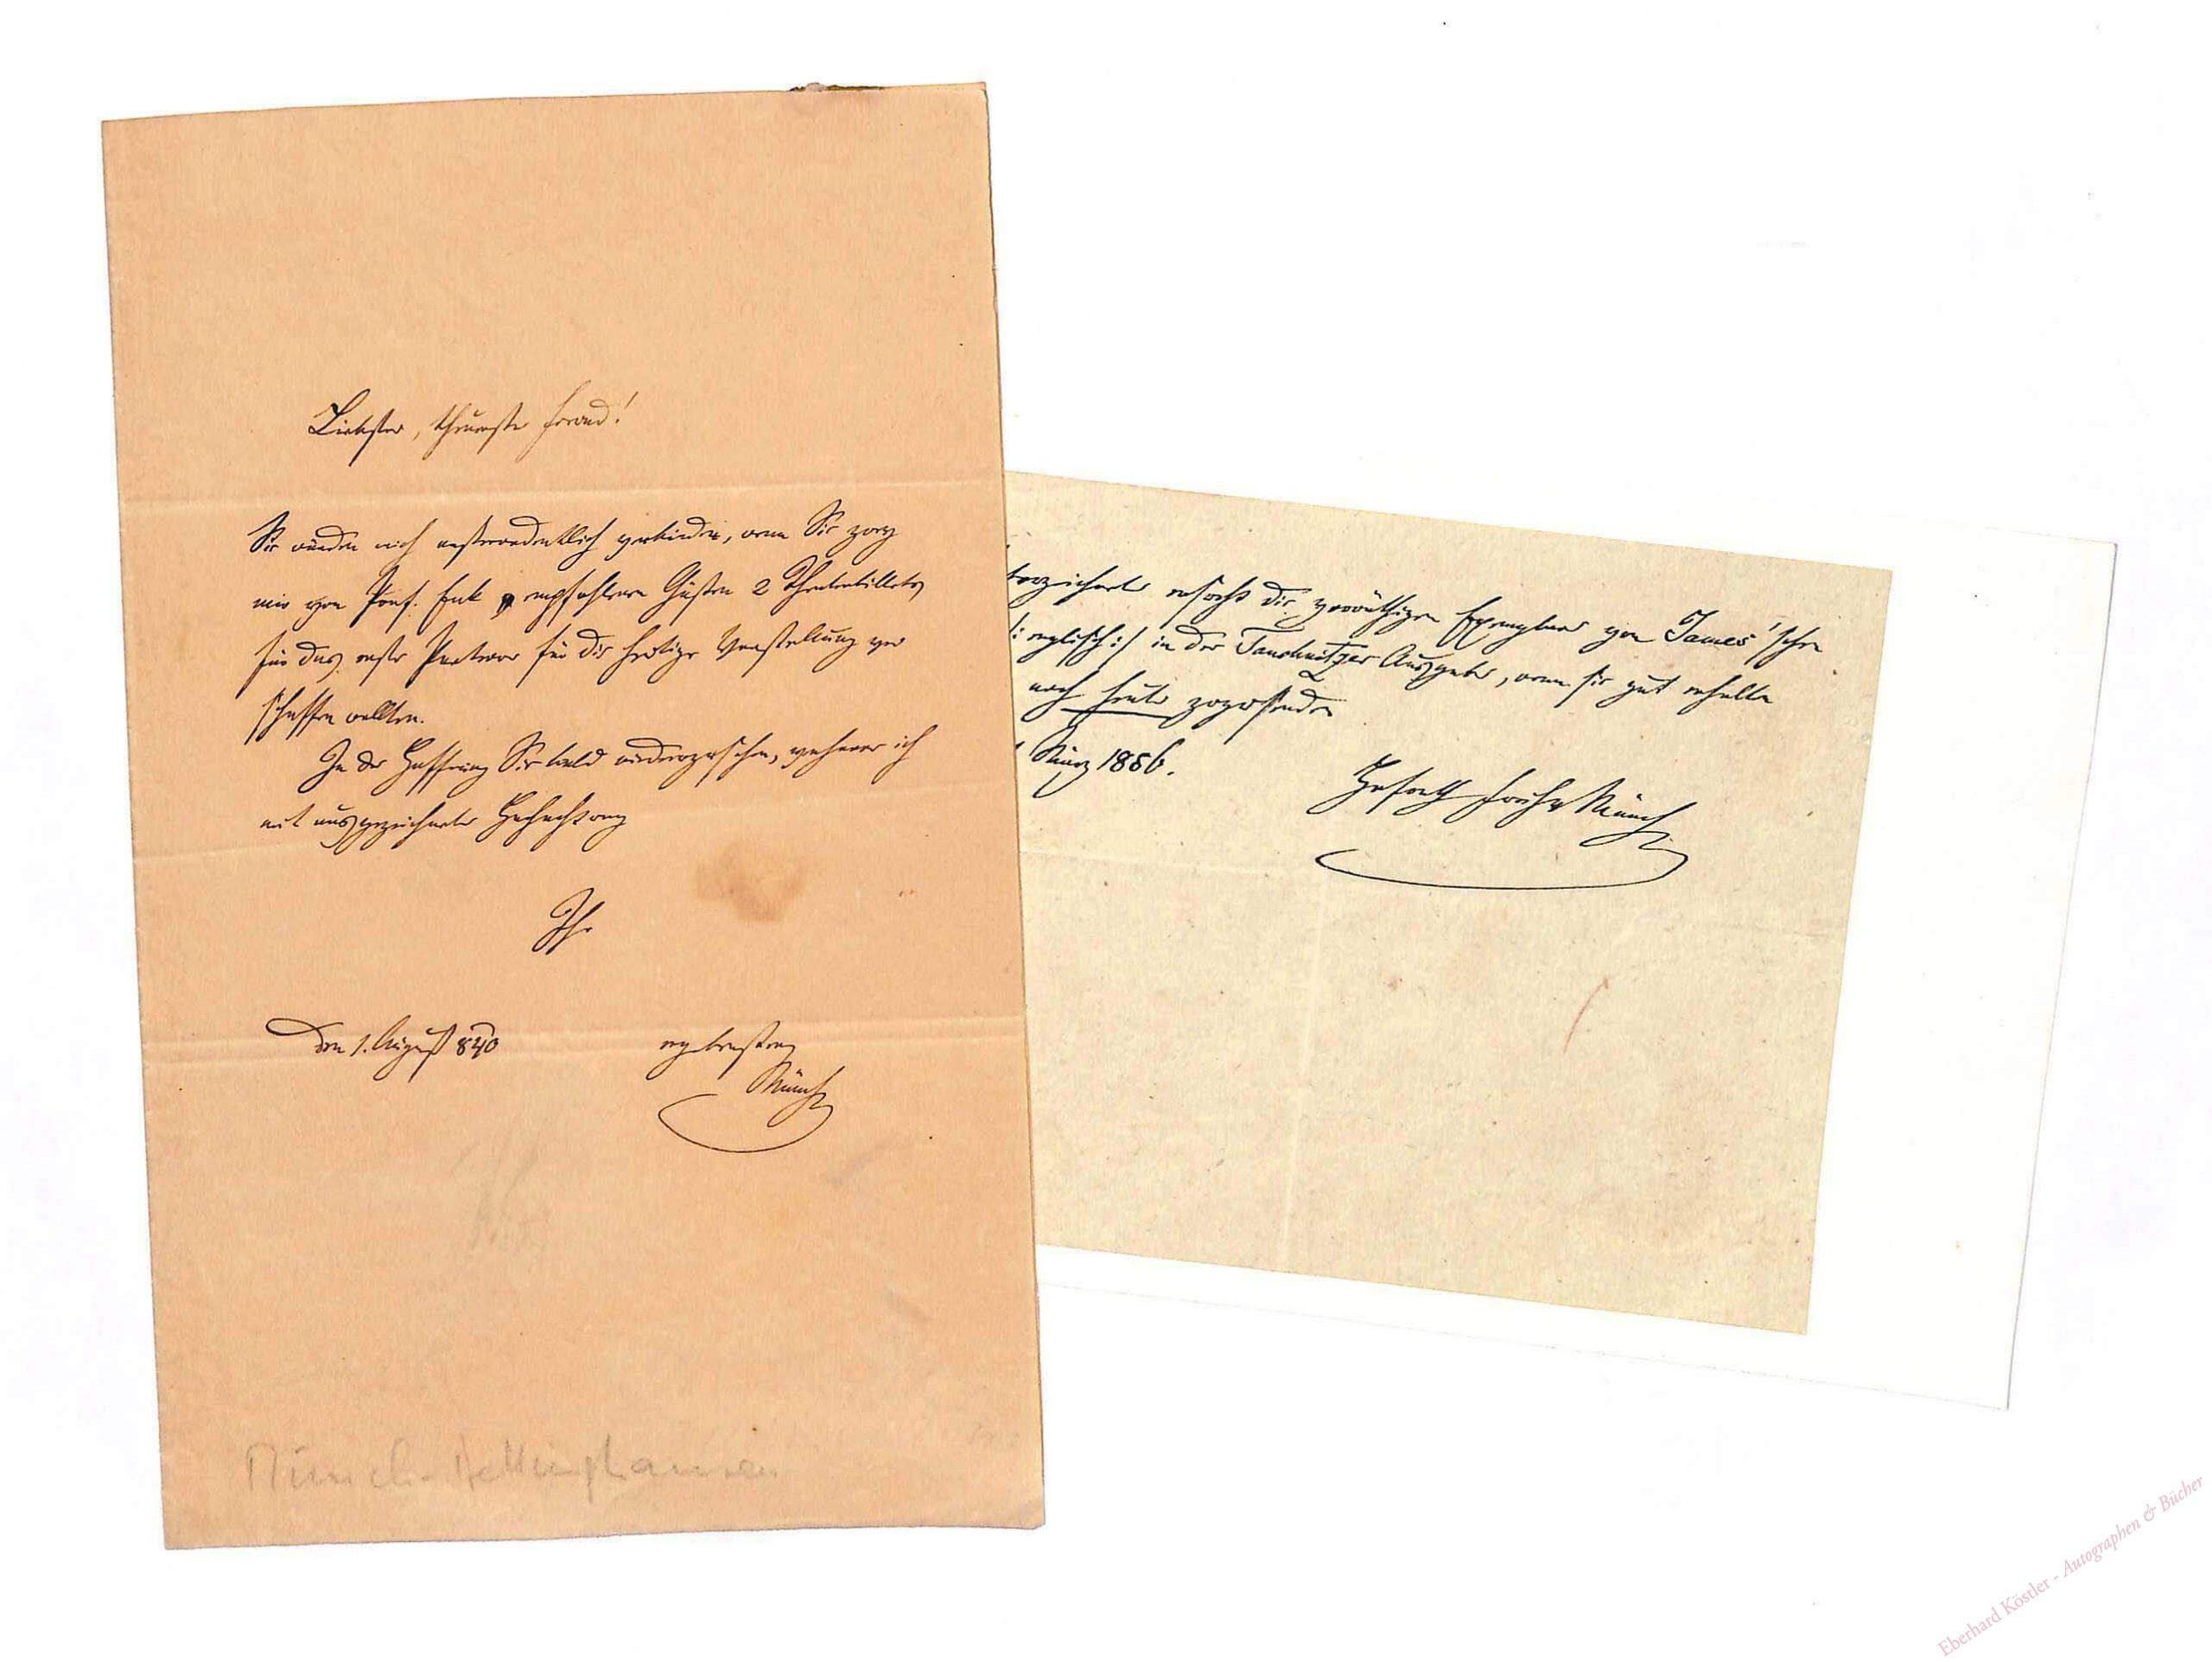 Liebster, theuerster Freund!
Sie würden mich außerordentlich verbinden, wenn Sie zwey
mir von Prof. Enk empfohlenen Gästen 2 Theaterbillets
für das erste Parterre für die heutige Vorstellung ver
schaffen wollten.
In der Hoffnung Sie bald wiederzusehen, verharre ich
mit ausgezeichneter Hochachtung
Ihr
den 1. August 840
ergebenster
Münch
Münch-Bellinghausen
ersucht die vorräthigen Exemplare von James'schen
|: englisch :| in der Tauchnitzer Ausgabe, wenn sie gut erhalten
noch heute zuzusenden
März 1856.
Hofrath Freih v Münch
Eberhard Köstler - Autographen & Bücher